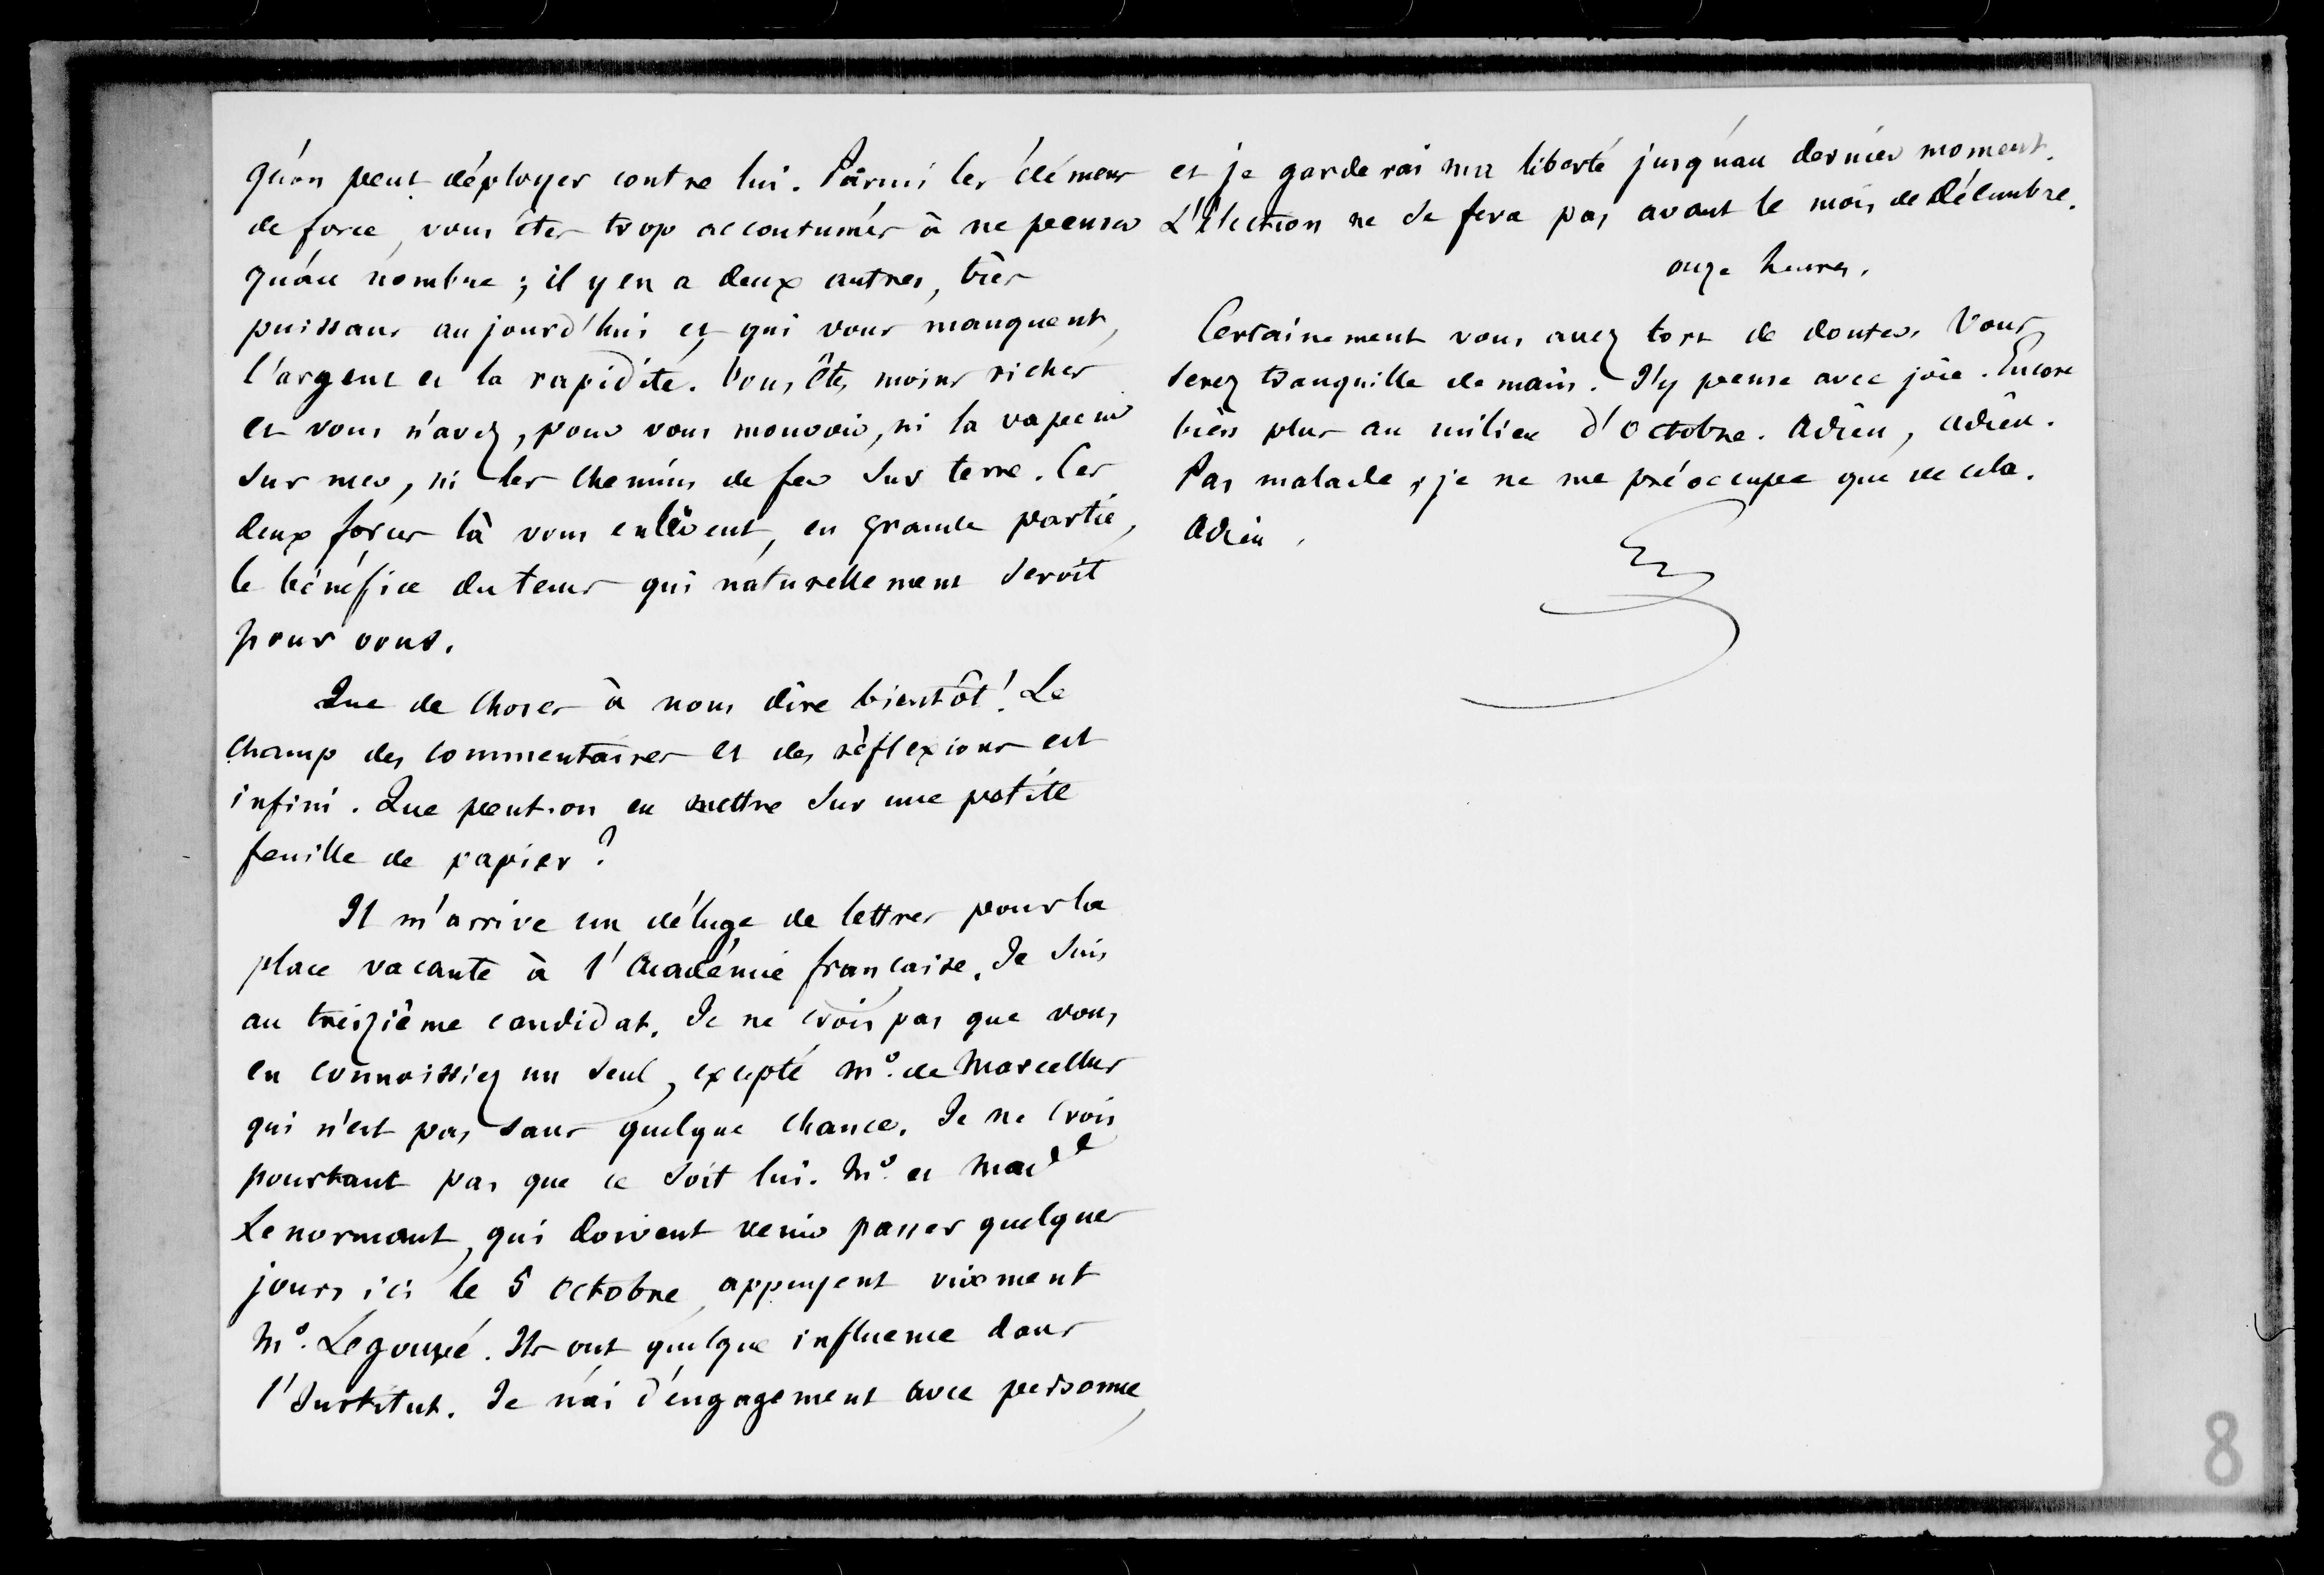 qu'on peut déployer contre lui. Parmi les élémens
de force, vous êtes trop accoutumés à ne penser
qu'au nombre ; il y en a deux autres, très
puissans aujourd'hui et qui vous manquent,
l'argent et la rapidité. Vous êtes moins riches
et vous n'avez, pour vous mouvoir, ni la vapeur
sur mer, ni les chemins de fer sur terre. Ces
deux forces là vous enlèvent, en grande partie,
le bénéfice du tems qui naturellement seroit
pour vous.
Que de choses à nous dire bientôt ! Le
champ des commentaires et des réflexions est
infini. Que peut-on en mettre sur une petite
feuille de papier ?
Il m'arrive un déluge de lettres pour la
place vacante à l'Académie française. Je suis
au treizième candidat. Je ne crois pas que vous
en connoissiez un seul, excepté Mr. de Marcellus
qui n'est pas sans quelque chance. Je ne crois
pourtant pas que ce soit lui. Mr. et Made
Lenormant, qui doivent venir passer quelques
jours ici le 5 octobre, appuyent vivement
Mr. Legouvé. Ils ont quelque influence dans
l'Institut. Je n'ai d'engagement avec personne,
et je garderai ma liberté jusqu'au dernier moment.
L'Election ne se fera pas avant le mois de Décembre.
onze heures.
Certainement vous avez tort de douter. Vous
serez tranquille demain. J'y pense avec joie. Encore
bien plus au milieu d'octobre. Adieu, adieu.
Pas malade, je ne me préoccupe que de cela.
Adieu.
8